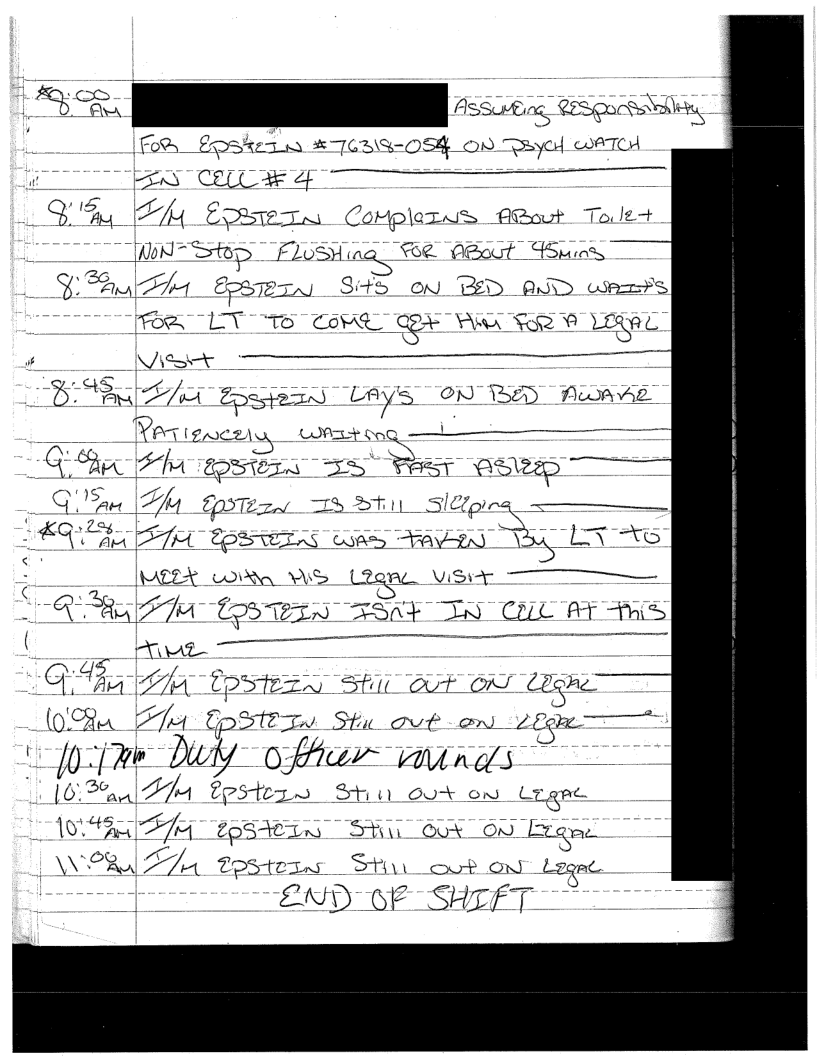 *8:00 AM Assumeing Responsibility
FOR EPSTEIN #76318-054 ON PSYCH WATCH
IN CELL # 4
8:15 AM I/M EPSTEIN COMPLAINS ABOUT Toilet
NON-Stop FLUSHing FOR ABOUT 45mins
8:30 AM I/M EPSTEIN Sit's ON BED AND WAIt's
FOR LT TO COME get Him FOR A LEgAL
Visit
8:45 AM I/M EPSTEIN LAY'S ON BED AWAKE
PATIENCELY WAITing
9:00 AM I/M EPSTEIN IS FAST ASlEEp
9:15 AM I/M EPSTEIN IS Still SlEEping
*9:28 AM I/M EPSTEIN WAS TAKEN By LT to
MEEt With His LEgAL Visit
9:30 AM I/M EPSTEIN Isn't IN CELL At this
time
9:45 AM I/M EPSTEIN still out ON LEgAL
10:00 AM I/M EPSTEIN Still out on LEgAL
10:17am Duty officer rounds
10:30 am I/M EPSTEIN Still out ON LEgAL
10:45 AM I/M EPSTEIN Still out ON LEgAL
11:00 AM I/M EPSTEIN Still out ON LEgAL
END OF SHIFT